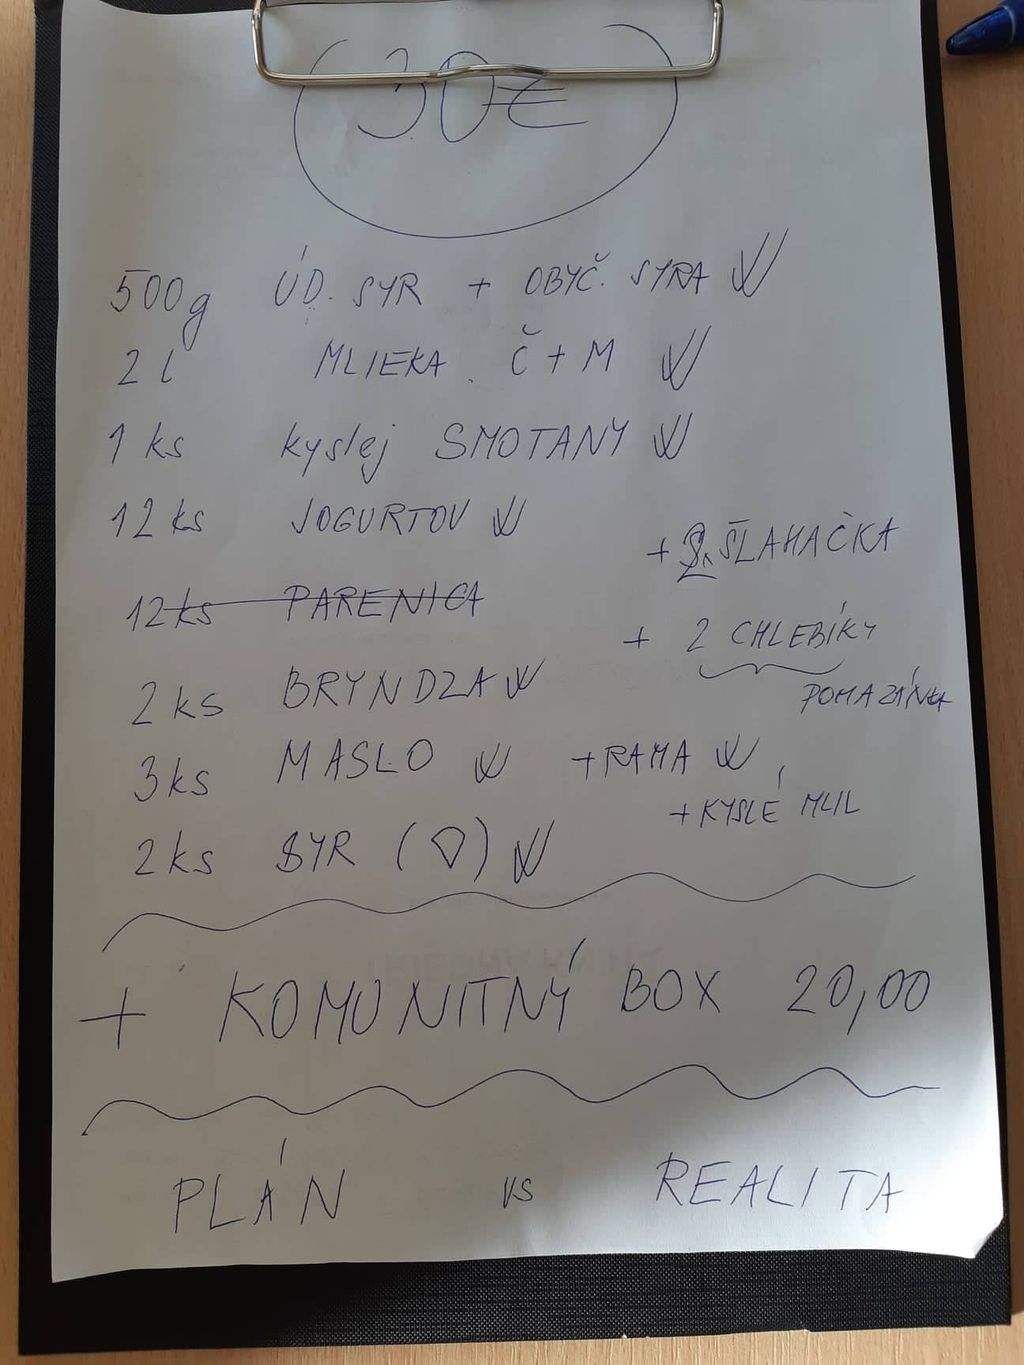 30€
500g ÚD. SYR + OBYČ. SYRA
2 l MLIEKA Č + M
1 ks kyslej SMOTANY
12 ks JOGURTOV
+ 2x ŠLAHAČKA
12 ks PARENICA
+ 2 CHLEBÍKY
POMAZÁNKA
2 ks BRYNDZA
3 ks MASLO + RAMA
+ KYSLÉ
2 ks SYR
+ KOMUNITNÝ BOX 20,00
PLÁN vs REALITA